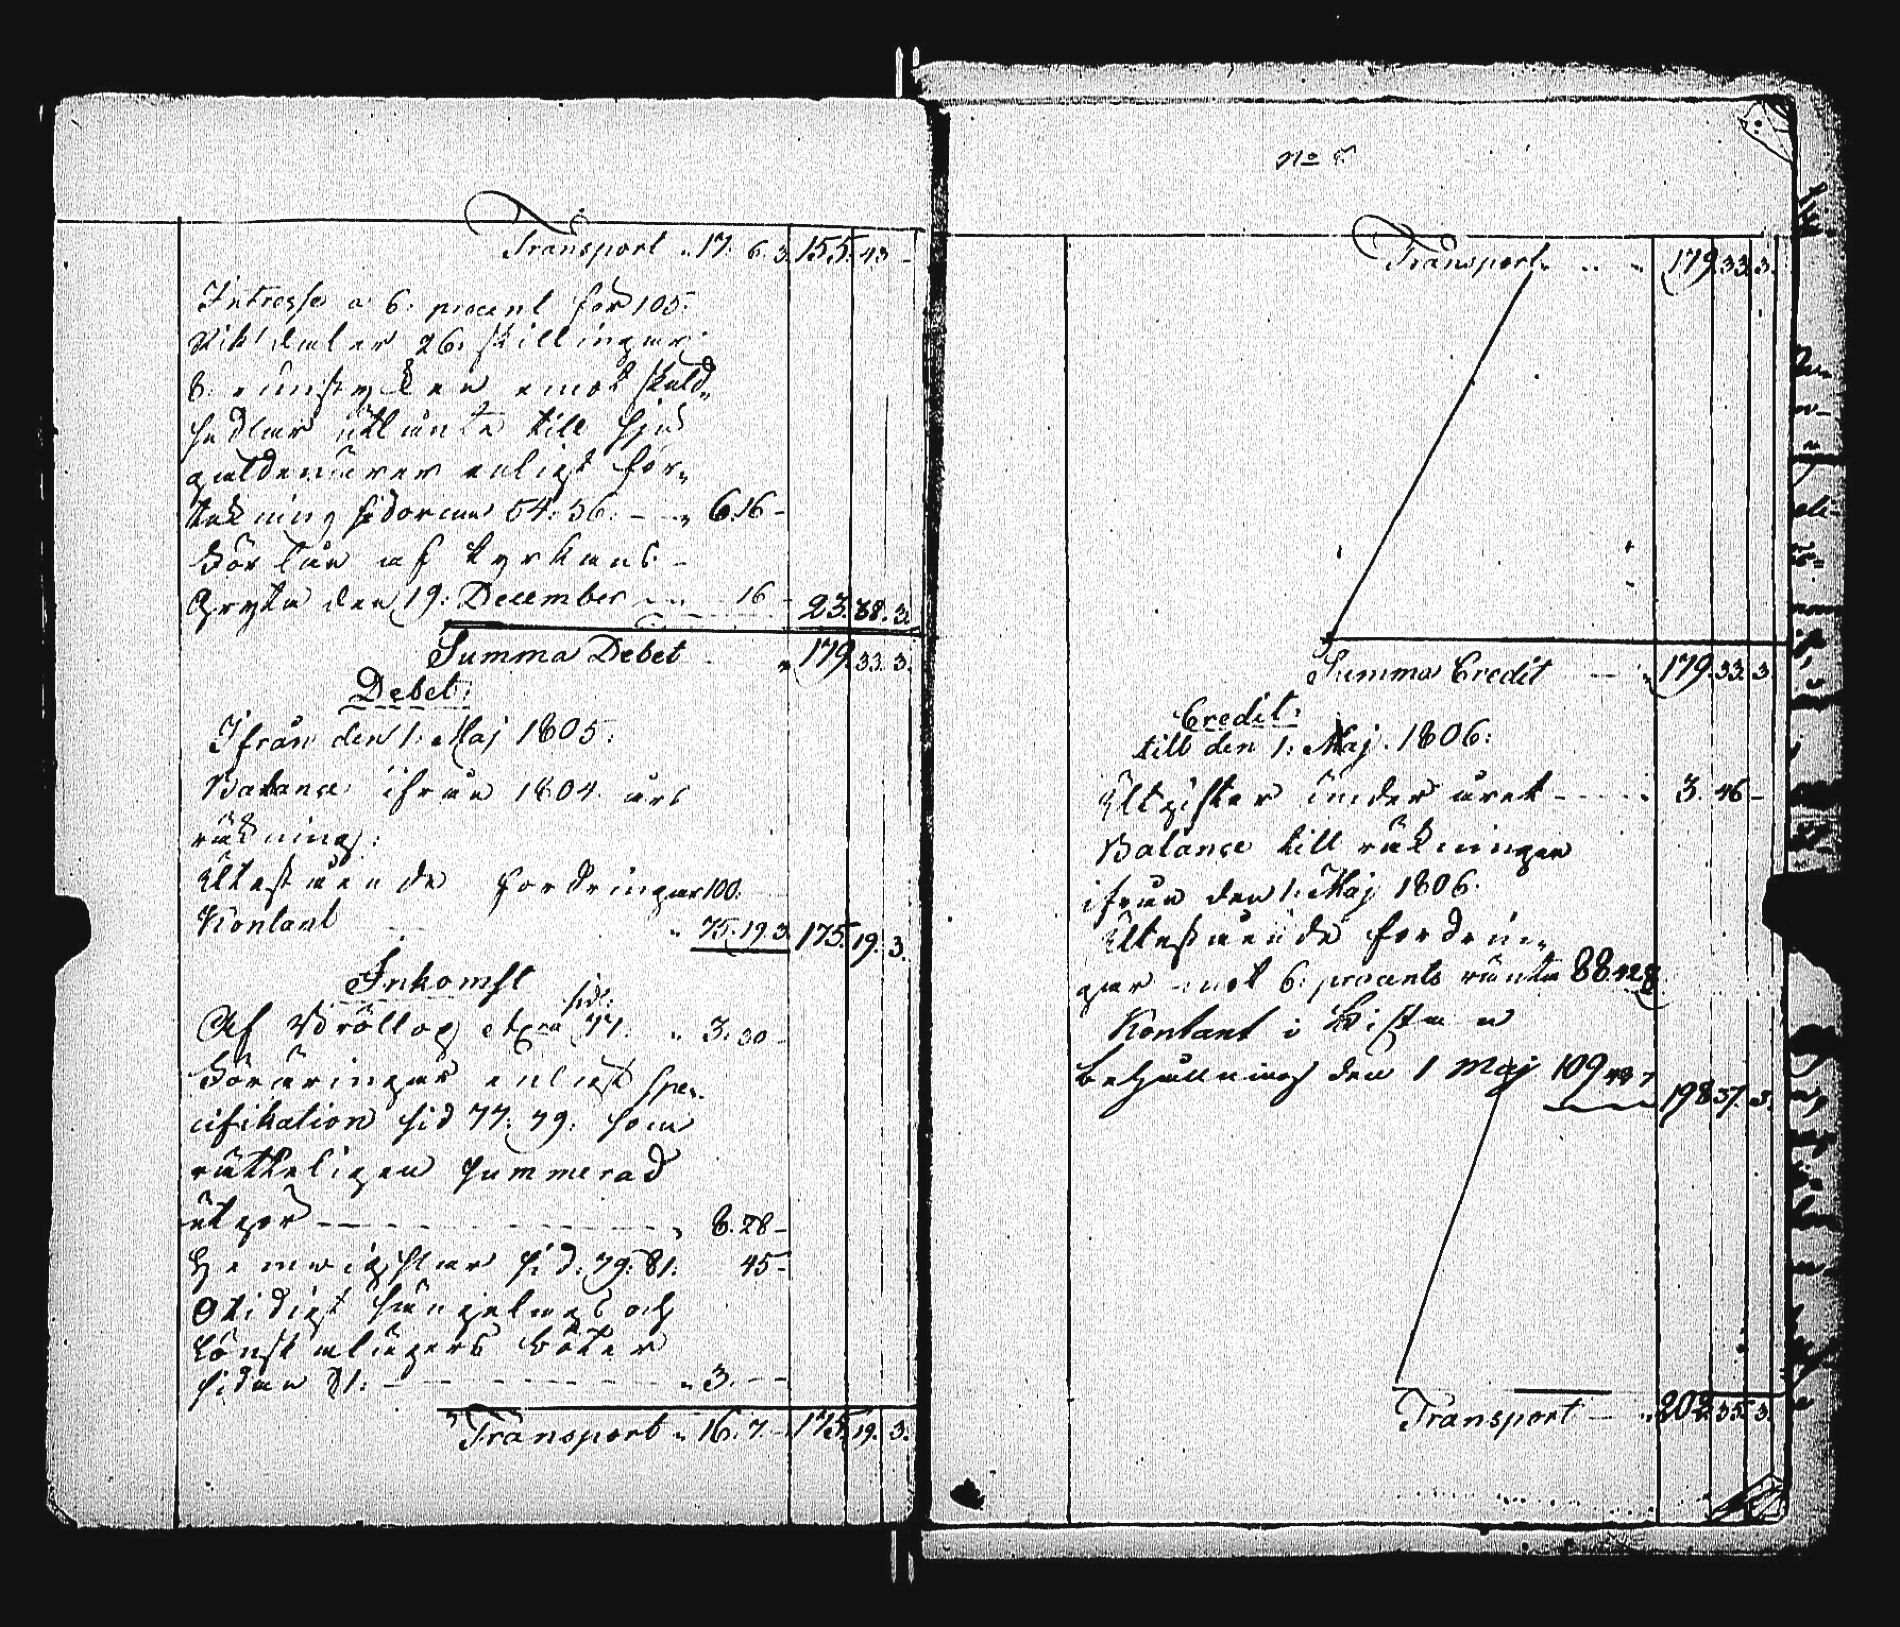 Transport „ 17. 6. 3. 155. 43 -
Intresse a 6. procent för 105.
Riksdaler 26. skillingar
8. runstycken emot skuld„
sedlar utlånte till
gäldenärer enligt för„
tekning sidorna 54. 56. - - „ 6. 16 -
För lån af kyrkans -
Gryta den 19. December - - 16 - 23. 38. 3.
Summa Debet - „ 179. 33. 3.
Debet:
Ifrån den 1. Maj 1805.
Balance ifrån 1804 års
räkning:
Utestående fordringar 100.
Kontant „ 75. 19. 3. 175. 19. 3.
Inkomst
Af Bröllop sid: 77. „ 3. 30 -
Föräringar enligt spe„
cifikation sid 77. 79. som
rätteligen summerad
utgör - - - - 8. 28 -
sid. 79. 81. 45 -
Otidigt sängelags och
Lönskalägers böter
sidan 81. - - - - „ 3. - -
Transport „ 16. 7. - 175. 19. 3.
No
Transport „ - - „ 179. 33. 3.
Summa Credit - - „ 179. 33. 3
Credit:
till den 1. Maj. 1806:
Utgifter under året - - - - 3. 46 -
Balance till räkningen
ifrån den 1. Maj 1806.
Utestående fordrin„
gar mot 6. procents ränta 88. 42. 8
Kontant i Kistan
behållning den 1 Maj 109. 42 7 198. 37. 3.
Transport - „ 202. 35. 3.